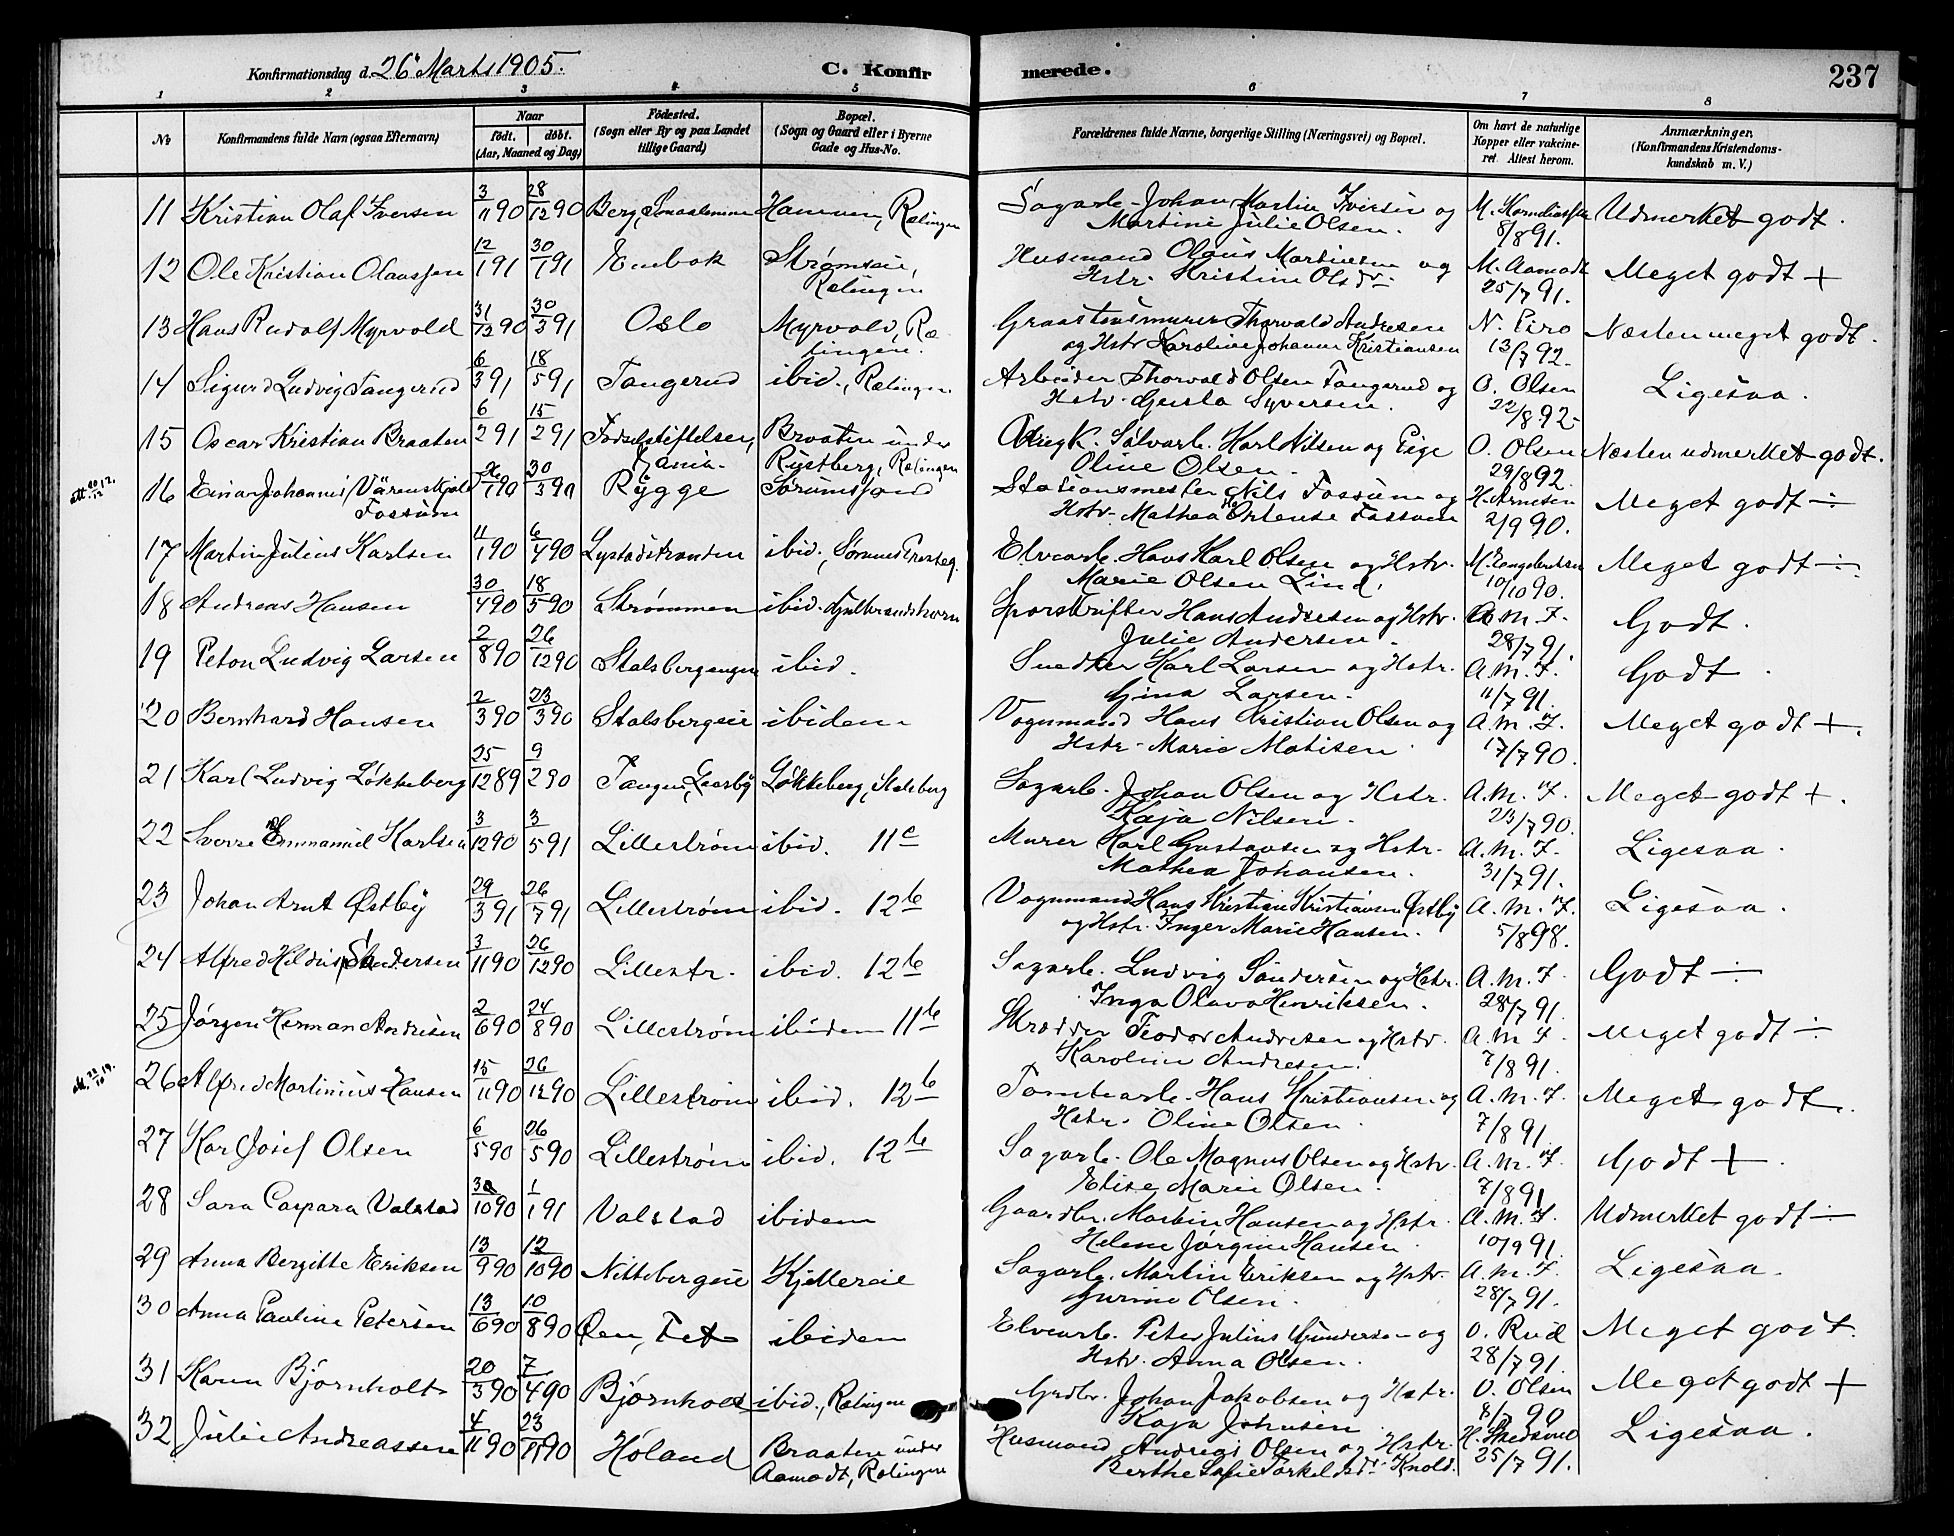 Konfirmationsdag d. 26 Marts 1905. C. Konfirmerede. 237
1 2 3 4 5 6 7 8
No Konfirmandens fulde Navn (ogsaa Efternavn) Naar født. døbt. (Aar, Maaned og Dag) Fødested. (Sogn eller By og paa Landet tillige Gaard) Bopæl. (Sogn og Gaard eller i Byerne Gade og Hus-No. Forældrenes fulde Navne, borgerlige Stilling (Næringsvei) og Bopæl. Om havt de naturlige Kopper eller vakcineret. Attest herom. Anmærkninger. (Konfirmandens Kristendomskundskab m. V.)
11 Kristian Olaf Iversen 3/11 90 28/12 90 Berg, Smaalenene Hammer, Rælingen Sagarb. Johan Martin Iversen og Martine Julie Olsen. 8/8 91. Udmerket godt.
12 Ole Kristian Olaussen 12/1 91 30/1 91 Enebak Strømseie, Rælingen Husmand Olaus Martinsen og Hstr. Kristine Olsdr. M. Aamodt 25/7 91. Meget godt +
13 Hans Rudolf Myrvold 31/12 90 30/3 91 Oslo Myrvold, Rælingen. Graastensmurer Thorvald Andresen og Hstr Karoline Johanne Kristiansen N. Eiro 13/7 92. Næsten meget godt.
14 Sigurd Ludvig Tangerud 6/3 91 18/5 91 Tangerud ibid., Rælingen Arbeider Thorvald Olsen Tangerud og Hstr. Gusta Syversen. O. Olsen 22/8 92. Ligesaa.
15 Oscar Kristian Braaten 6/2 91 15/2 91 Fødselsstiftelsen, Kania. Braaten under Rustberg, Rælingen Ungk. Sølvarb. Karl Nilsen og Pige Oline Olsen. O. Olsen 29/8 92. Næsten udmerket godt.
16 Einar Johannes Värenskjold Fossum 30/3 90 Rygge Sørumssand Stationsmester Nils Fossum og Hstr. Mathea Hortense Fossum H. Arnesen 2/9 90. Meget godt ÷
17 Martin Julius Karlsen 11/1 90 6/4 90 Lystadstranden ibid., Sørums Præsteg. Elvearb. Hans Karl Olsen og Hstr. Marie Olsen Lind. M. Engebretsen 10/10 90. Meget godt ÷.
18 Andreas Hansen 30/4 90 18/5 90 Strømmen ibid. Gulbrandshorn Sporskifter Hans Andresen og Hstr. Julie Andersen. A. M. F. 28/7 91. Godt.
19 Peton Ludvig Larsen 2/8 90 26/12 90 Stalsbergengen ibid. Snedker Karl Larsen og Hstr. Gina Larsen. A. M. F. 11/7 91. Godt.
20 Bernhard Hansen 2/3 90 23/3 90 Stalsbergeie ibidem. Vognmand Hans Kristian Olsen og Hstr. Marie Matisen. A. M. F. 17/7 90. Meget godt +.
21 Karl Ludvig Løkkeberg 25/12 89 9/2 90 Tangen, Garsby Løkkeberg, Stalsberg Sagarb. Johan Olsen og Hstr. Kaja Nilsen. A. M. F. 23/7 90. Meget godt +.
22 Sverre Emmanuel Karlsen 3/12 90 3/5 91 Lillestrøm ibid. 11c Murer Karl Gustavsen og Hstr. Mathea Johansen. A. M. F. 31/7 91. Ligesaa.
23 Johan Arnt Østby 29/3 91 26/7 91 Lillestrøm ibid. 12b Vognmand Hans Kristian Kristiansen Østby og Hstr. Inger Marie Hansen. A. M. F. 5/8 98. Ligesaa.
24 Alfred Hildus Sandersen 3/11 90 26/12 90 Lillestr. ibid. 12b Sagarb. Ludvig Sandersen og Hstr. Inga Olava Henriksen. A. M. F. 28/7 91. Godt ÷
25 Jørgen Herman Andresen 2/6 90 24/8 90 Lillestrøm ibidem 11b Skrædder Teodor Andresen og Hstr. Karoline Andresen. A. M. F. 7/8 91. Meget godt ÷
26 Alfred Martinius Hansen 15/11 90 26/12 90 Lillestrøm ibid. 12b Tomtearb. Hans Kristiansen og Hstr. Oline Olsen. A. M. F. 7/8 91. Meget godt.
27 Karl Josef Olsen 6/5 90 26/5 90 Lillestrøm ibid. 12b Sagarb. Ole Magnus Olsen og Hstr. Elise Marie Olsen. A. M. F. 7/8 91 Godt +.
28 Sara Caspara Valstad 30/10 90 1/1 91 Valstad ibidem Gaardbr. Martin Hansen og Hstr. Helene Jørgine Hansen. A. M. F. 10/9 91. Udmerket godt ÷
29 Anna Bergitte Eriksen 13/9 90 12/10 90 Nittebergeie Kjellereie Sagarb. Martin Eriksen og Hstr. Gurine Olsen. A. M. F. 28/7 91. Ligesaa.
30 Anna Pauline Petersen 13/6 90 10/8 90 Øen, Fet ibidem Elvearb. Peter Julius Gundersen og Hstr. Anna Olsen. O. Rud 28/7 91. Meget godt.
31 Karen Bjørnholt 20/3 90 7/4 90 Bjørnholt ibid., Rælingen Grdbr. Johan Jakobsen og Hstr. Kaja Johnsen. O. Olsen Meget godt +
32 Julie Andreassen 4/11 90 23/11 90 Høland Braaten under Aamodt, Rælingen Husmand Andreas Olsen og Hstr. Berthe Sofie Torkildsdr. Knold. H. Skedsmo 25/7 91. Ligesaa.